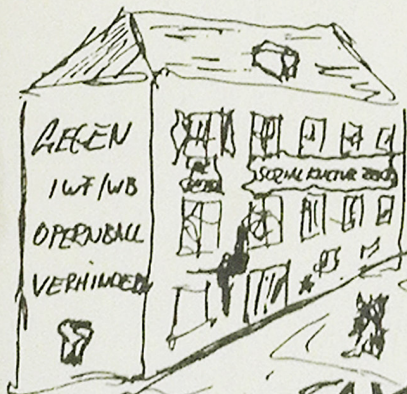 GEGEN
IWF/WB
OPERNBALL
VERHINDERN
SOZIAL KULTUR